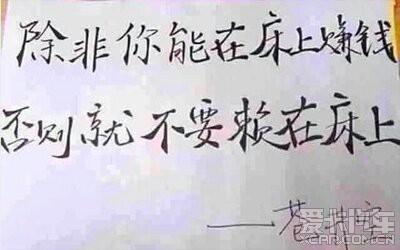 除非你能在床上赚钱
否则就不要赖在床上
爱卡汽车
CAR.COM.CN